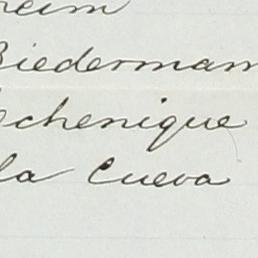 heim
Biedermann
Echenique
la Cueva